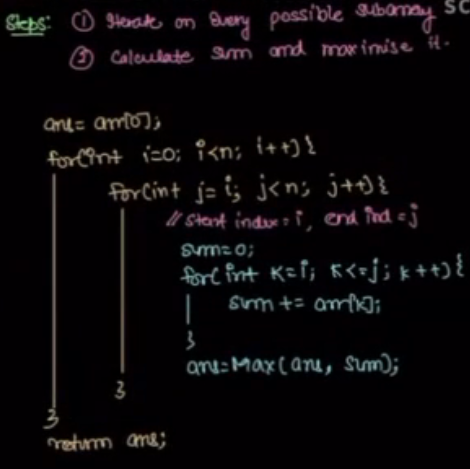 Steps: ① Iterate on every possible subarray SC
② Calculate sum and maximise it.
ans= arr[0];
for(int i=0; i<n; i++){
for(int j=i; j<n; j++){
// start index=i, end ind=j
sum=0;
for(int k=i; k<=j; k++){
sum += arr[k];
}
ans=Max(ans, sum);
}
}
return ans;